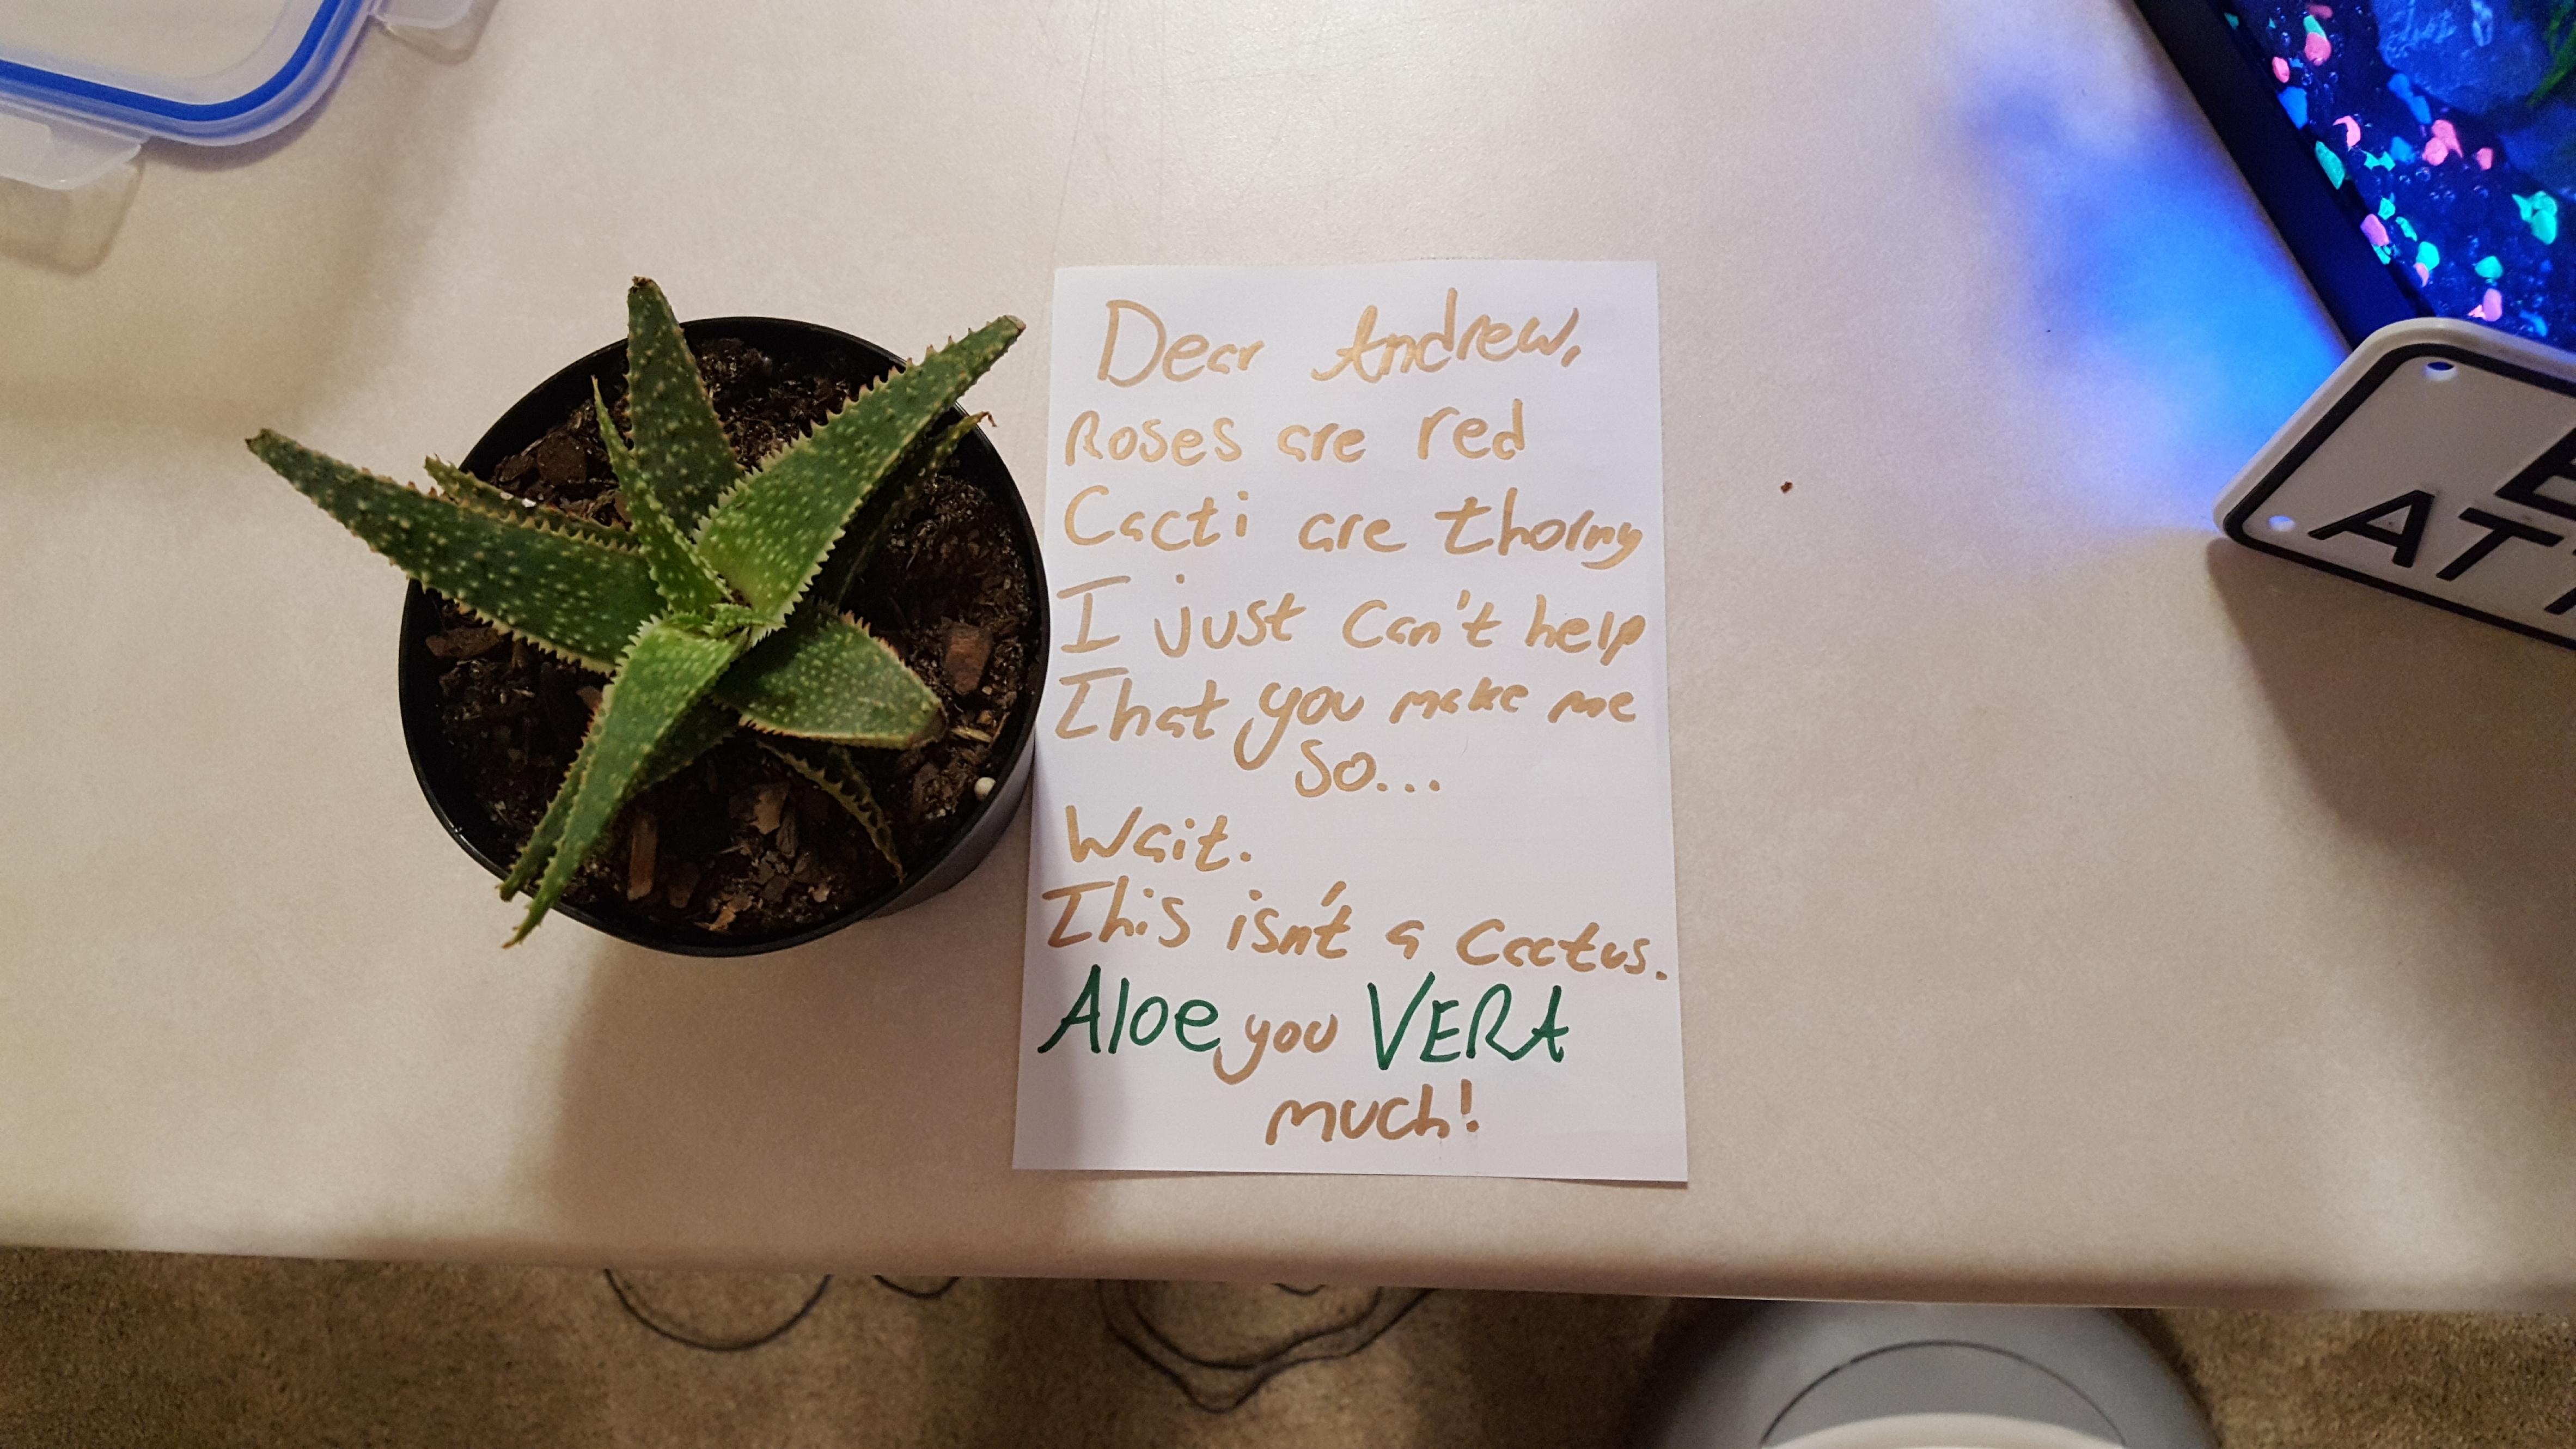 Dear Andrew,
Roses are red
Cacti are thorny
I just can't help
That you make me
so...
Wait.
This isn't a Cactus.
Aloe you VERA
much!